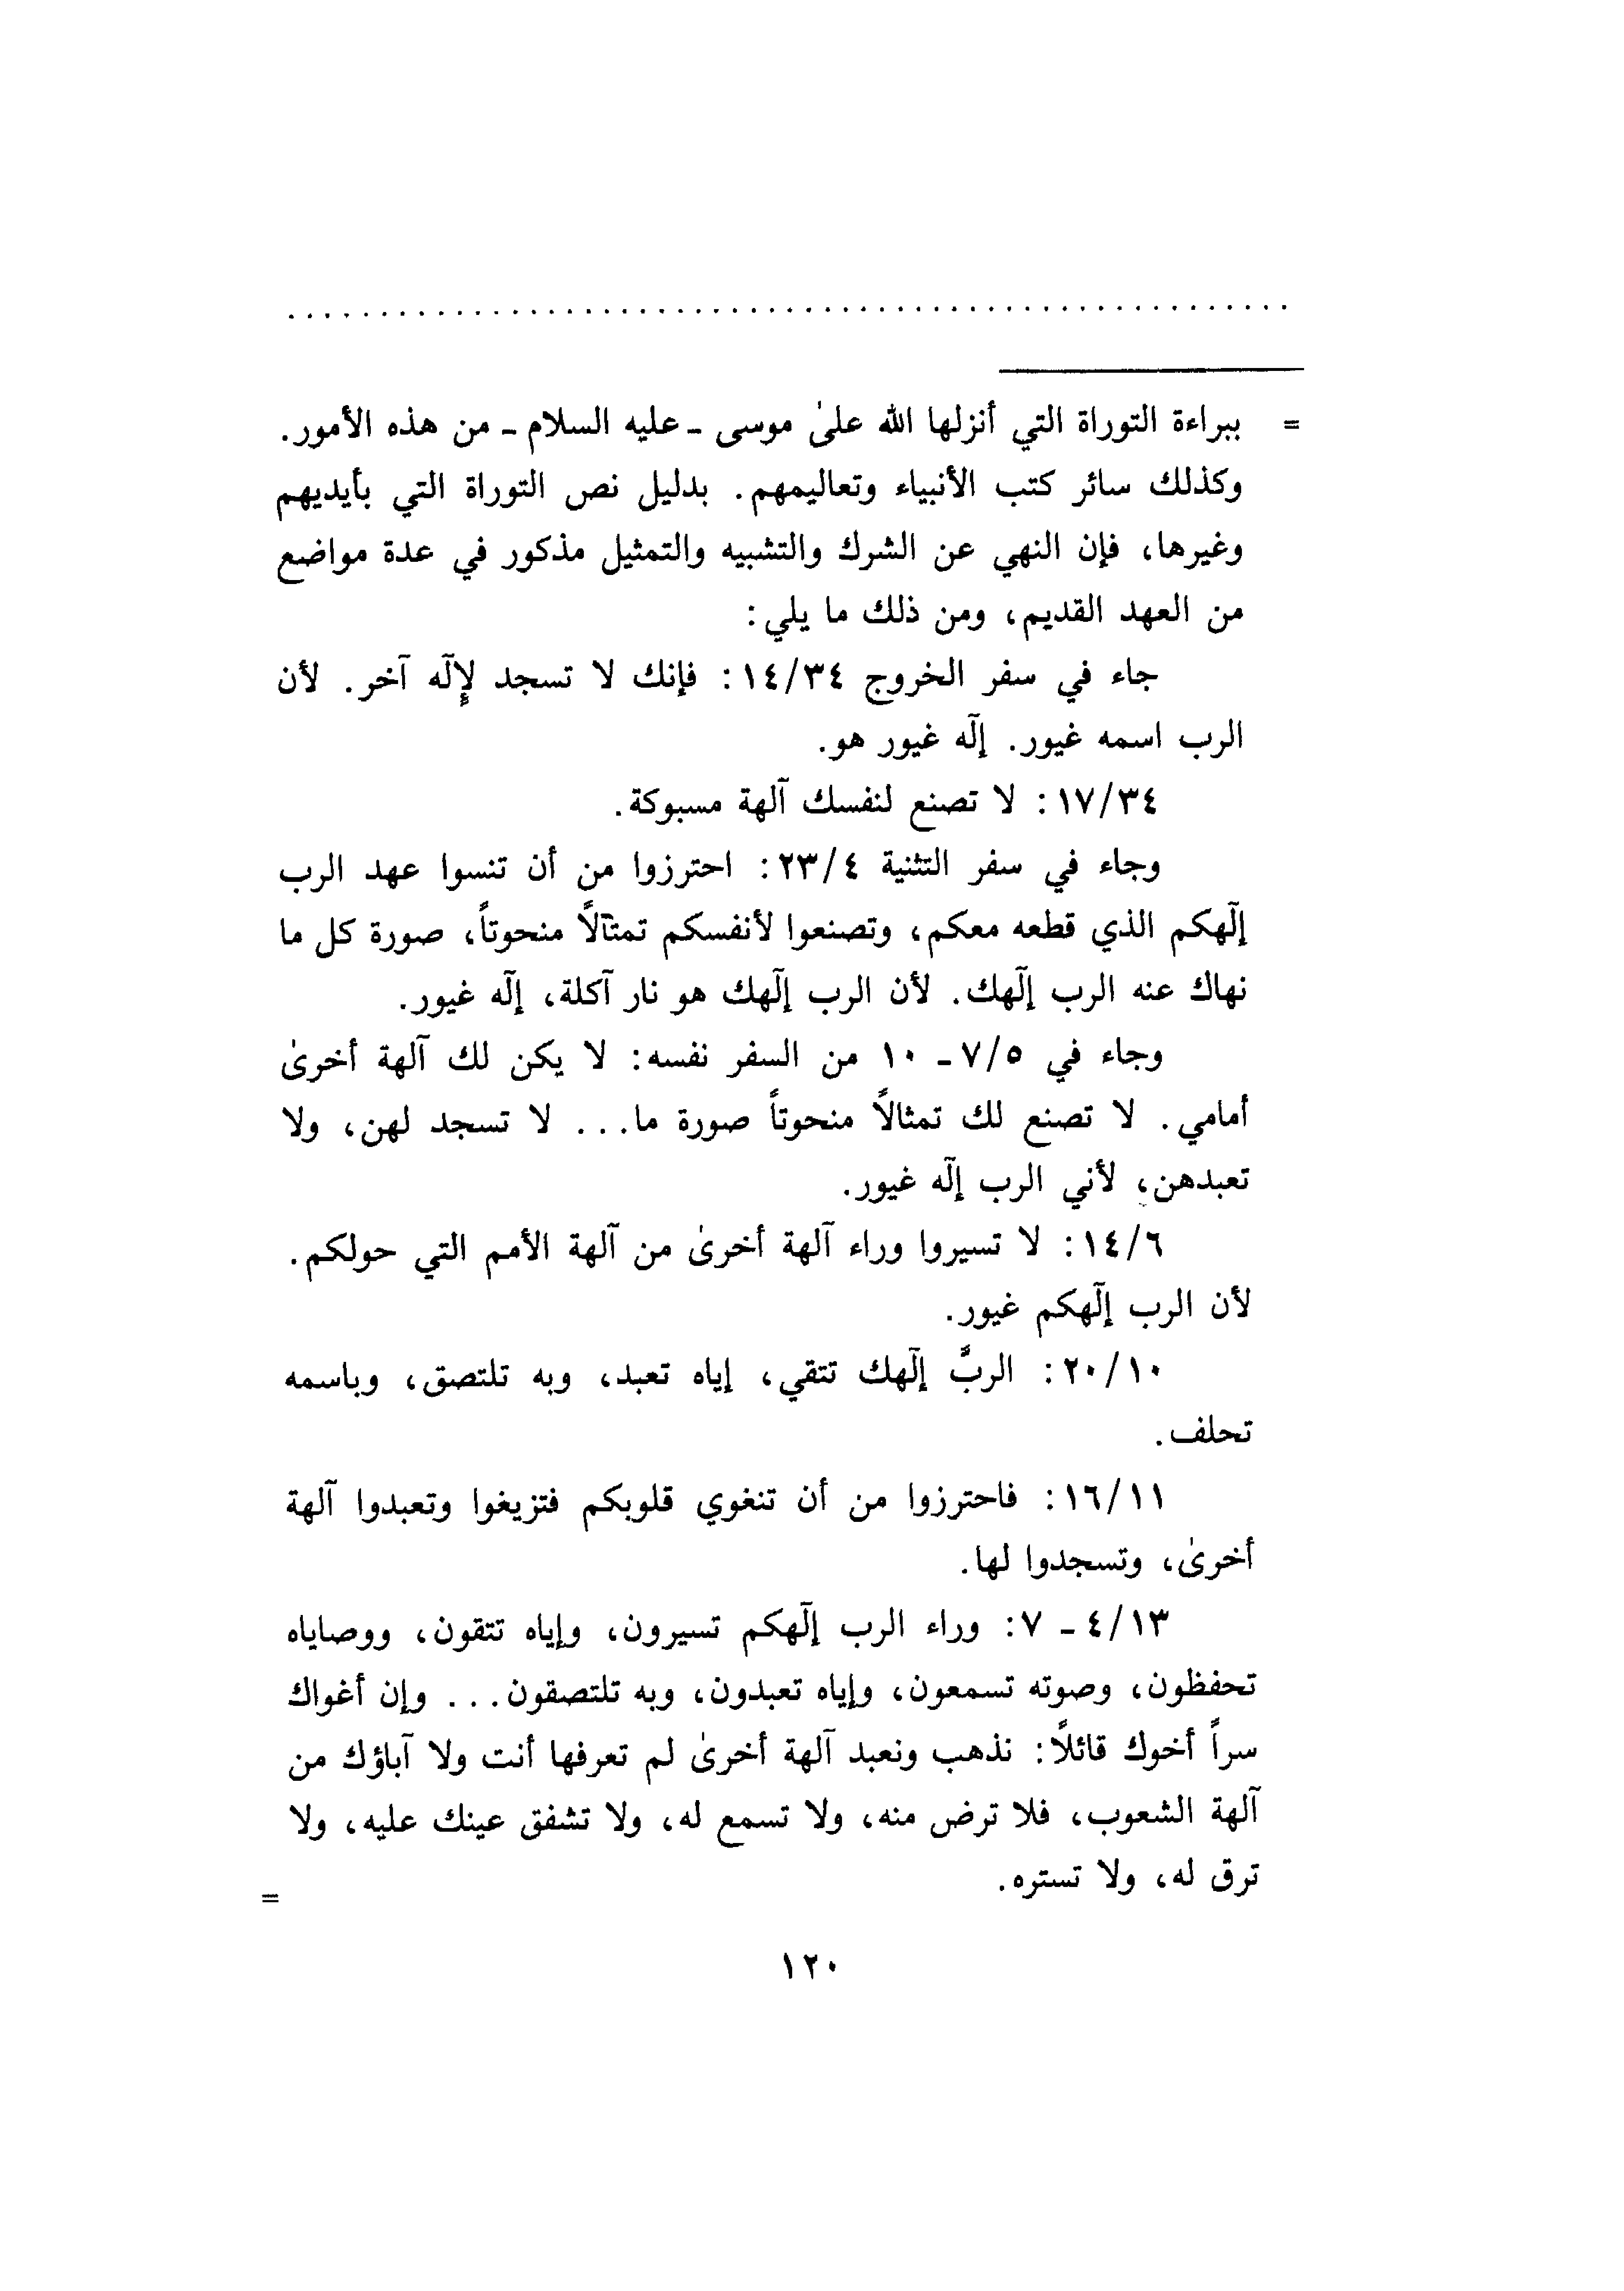 . . . . . . . . . . . . . . . . . . . . . . . . . . . . . . . . . . . . . . . . . . . . . . . . . . . . . . .
= ببراءة التوراة التي أنزلها الله علىٰ موسى ـ عليه السلام ـ من هذه الأمور.
وكذلك سائر كتب الأنبياء وتعاليمهم. بدليل نص التوراة التي بأيديهم
وغيرها، فإن النهي عن الشرك والتشبيه والتمثيل مذكور في عدة مواضع
من العهد القديم، ومن ذلك ما يلي:
جاء في سفر الخروج ١٤/٣٤: فإنك لا تسجد لإلٓه آخر. لأن
الرب اسمه غيور. إلٓه غيور هو.
١٧/٣٤: لا تصنع لنفسك آلهة مسبوكة.
وجاء في سفر التثنية ٢٣/٤: احترزوا من أن تنسوا عهد الرب
إلٓهكم الذي قطعه معكم، وتصنعوا لأنفسكم تمثآلاً منحوتاً، صورة كل ما
نهاك عنه الرب إلٓهك. لأن الرب إلٓهك هو نار آكلة، إلٓه غيور.
وجاء في ٧/٥ ـ ١٠ من السفر نفسه: لا يكن لك آلهة أخرىٰ
أمامي. لا تصنع لك تمثالاً منحوتاً صورة ما... لا تسجد لهن، ولا
تعبدهن، لأني الرب إلٓه غيور.
١٤/٦: لا تسيروا وراء آلهة أخرىٰ من آلهة الأمم التي حولكم.
لأن الرب إلٓهكم غيور.
٢٠/١٠: الربَّ إلٓهك تتقي، إياه تعبد، وبه تلتصق، وباسمه
تحلف.
١٦/١١: فاحترزوا من أن تنغوي قلوبكم فتزيغوا وتعبدوا آلهة
أخرىٰ، وتسجدوا لها.
٤/١٣ ـ ٧: وراء الرب إلٓهكم تسيرون، وإياه تتقون، ووصاياه
تحفظون، وصوته تسمعون، وإياه تعبدون، وبه تلتصقون... وإن أغواك
سراً أخوك قائلاً: نذهب ونعبد آلهة أخرىٰ لم تعرفها أنت ولا آباؤك من
آلهة الشعوب، فلا ترض منه، ولا تسمع له، ولا تشفق عينك عليه، ولا
ترق له، ولا تستره. =
١٢٠